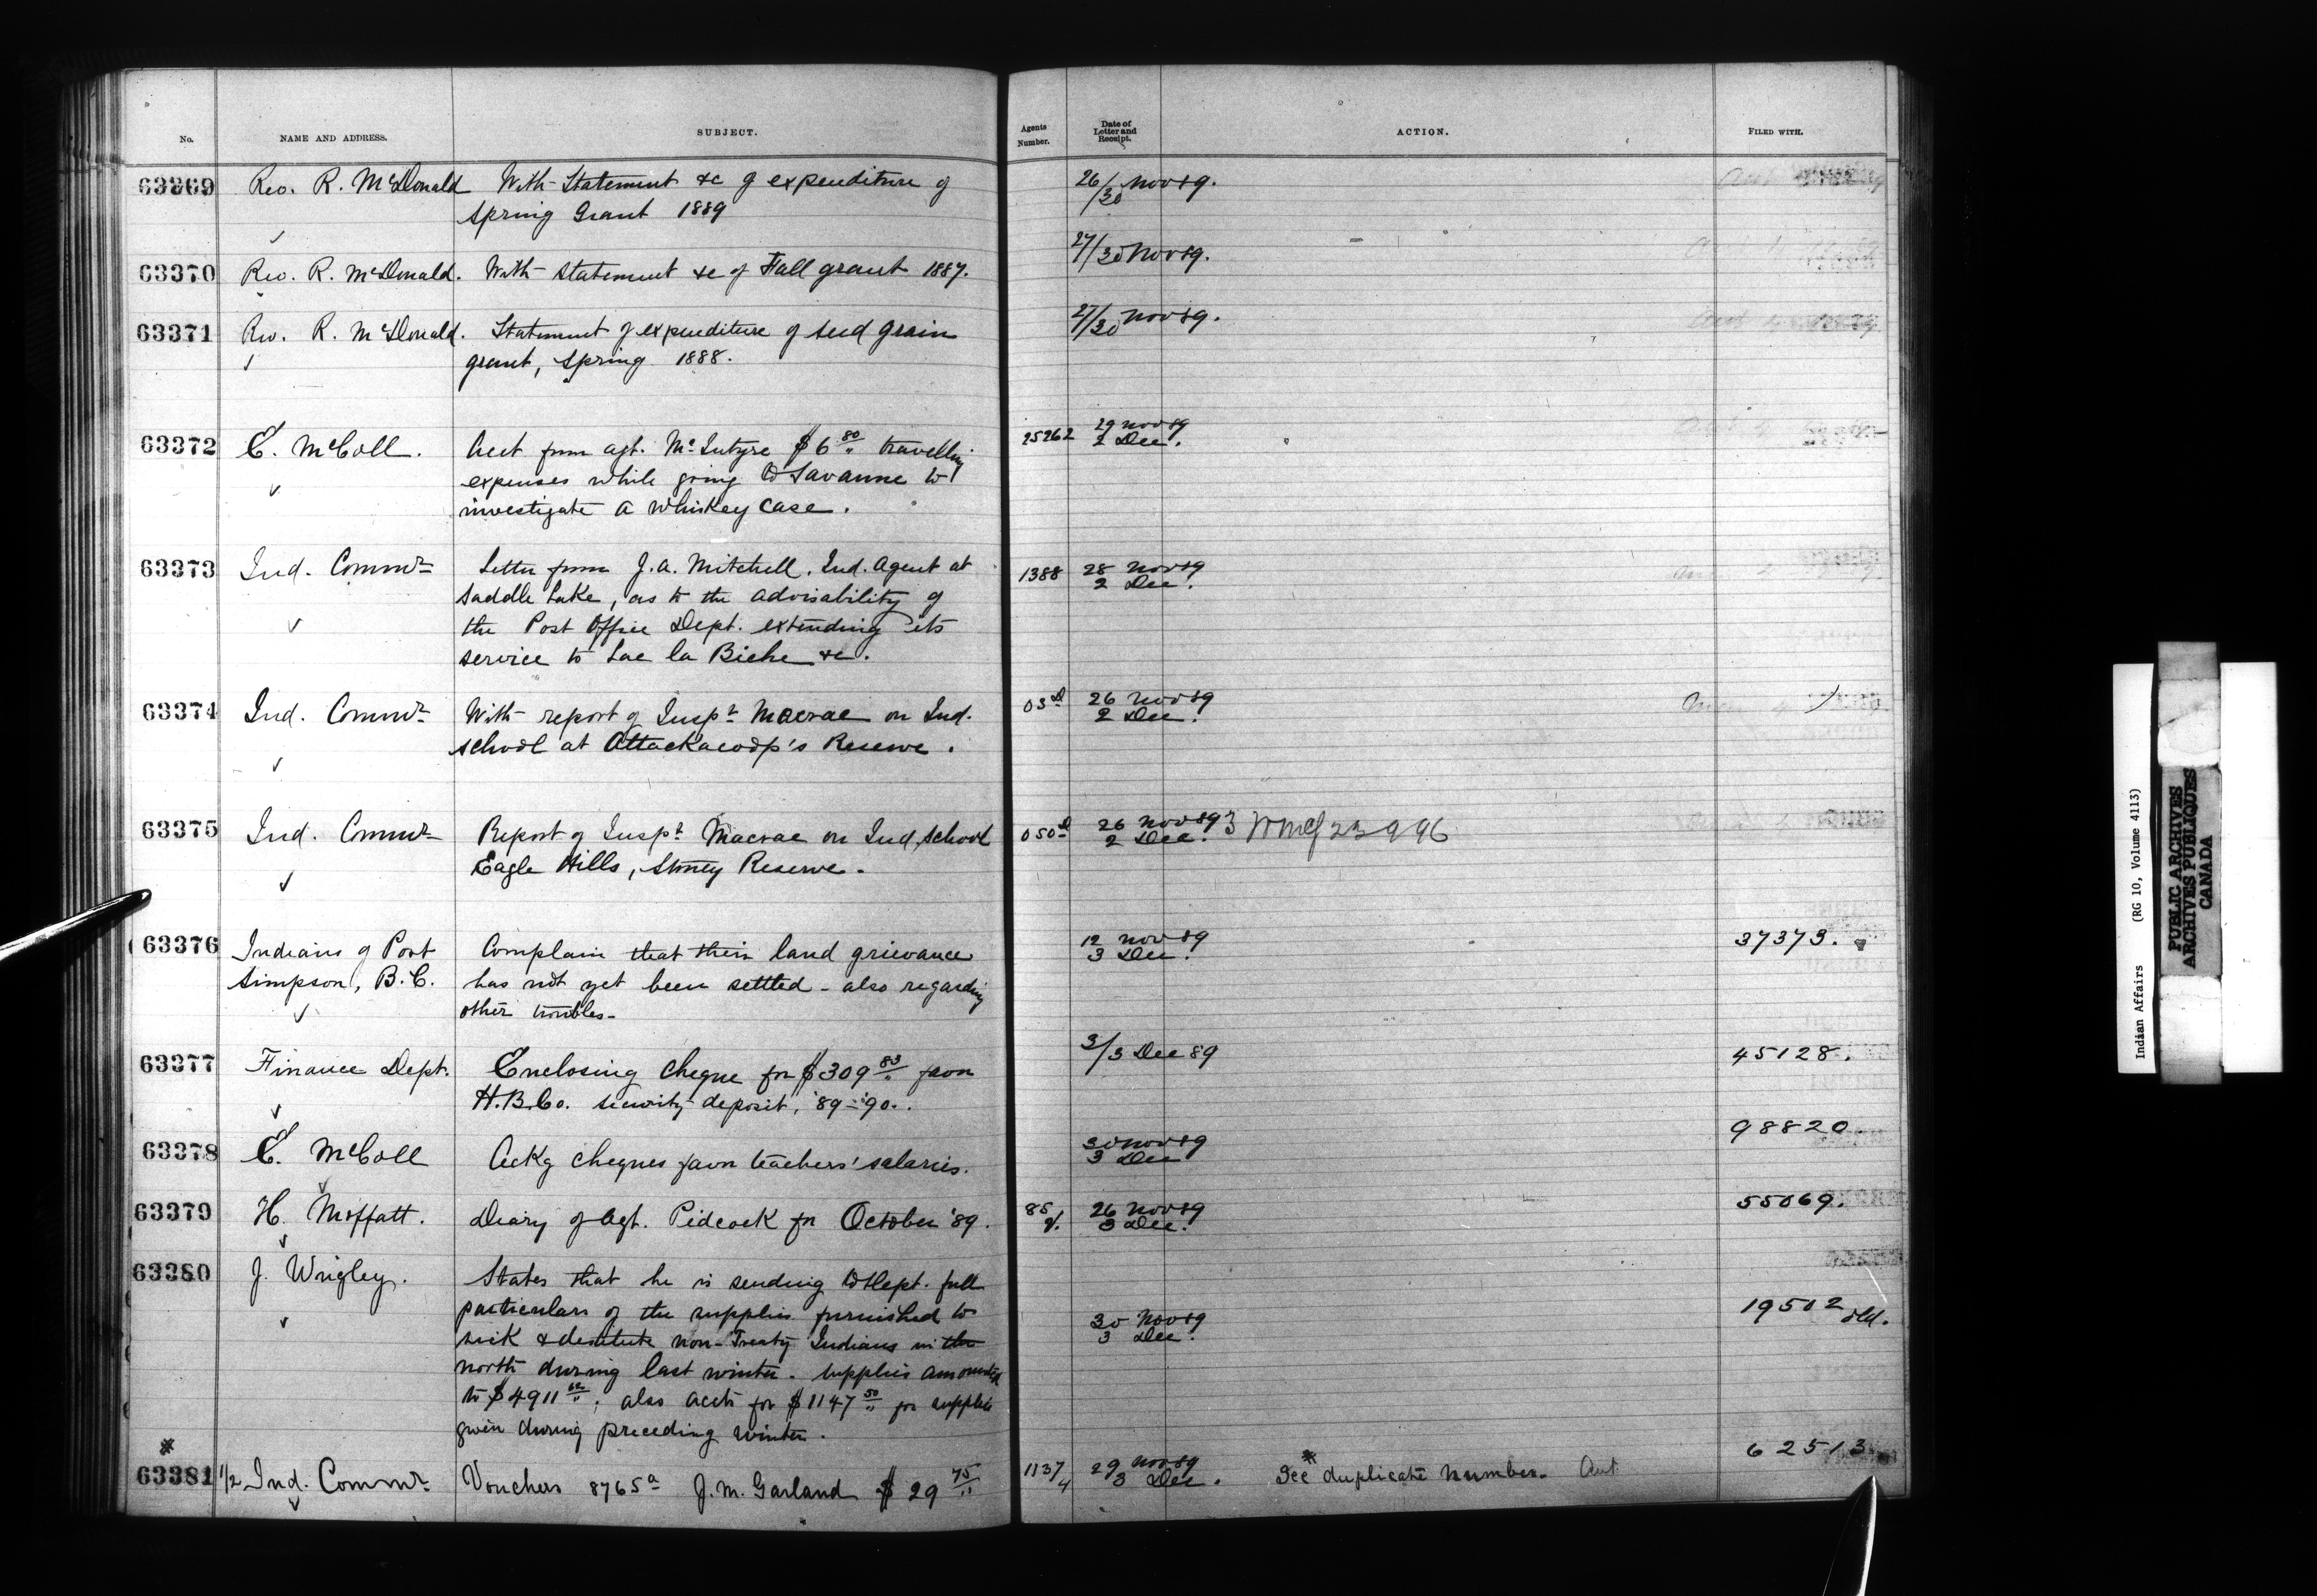 No. NAME AND ADDRESS. SUBJECT. Agents Number. Date of Letter and Receipt. ACTION. FILED WITH.
63369 Rev. R. McDonald With Statement &c of expenditure of 26/30 Nov 89.
Spring Grant 1889
63370 Rev. R. McDonald. With statement &c of Fall grant 1887. 27/30 Nov 89.
63371 Rev. R. McDonald. Statement of expenditure of seed grain 27/30 Nov 89.
grant, Spring 1888.
63372 E. McColl. Acct from agt. McIntyre $6 80/" travelling 25262 29 Nov 89
expenses while going to Savanne to 2 Dec.
investigate a whiskey case.
63373 Ind. Commr Letter from J.A. Mitchell, Ind. Agent at 1388 28 Nov 89
Saddle Lake, as to the advisability of 2 Dec.
the Post Office Dept. extending its
service to Lac la Biche &c.
63374 Ind. Commr With report of Inspr Macrae on Ind. 03d 26 Nov 89
school at Attackacoop's Reserve. 2 Dec.
63375 Ind. Commr Report of Inspr Macrae on Ind. school 050d 26 Nov 89
Eagle Hills, Stoney Reserve. 2 Dec.
63376 Indians of Port Complain that their land grievance 12 Nov 89 37373.
Simpson, B.C. has not yet been settled - also regarding 3 Dec.
other troubles-
63377 Finance Dept. Enclosing Cheque for $309 83/" favor 3/3 Dec 89 45128.
H.B.Co. security deposit, '89-'90.
63378 E. McColl Ackg cheques favor teachers' salaries. 30 Nov 89 98820.
3 Dec
63379 H. Moffatt. Diary of Agt. Pidcock for October '89. 85/ 26 Nov 89 55069.
3 Dec.
63380 J. Wrigley. States that he is sending to Dept. full
particulars of the supplies furnished to 30 Nov 89 19502 old.
sick & destitute non-Treaty Indians in the 3 Dec.
north during last winter. supplies amounted
to $4911 62/"; also accts for $1147 50/" for supplies
given during preceding winter.
63381 1/2 Ind. Commr Vouchers 8765a J.M. Garland $29 75/" 1137/4 29 Nov 89 See duplicate number. Aut. 62513
3 Dec.
Indian Affairs (RG 10, Volume 4113)
PUBLIC ARCHIVES
ARCHIVES PUBLIQUES
CANADA